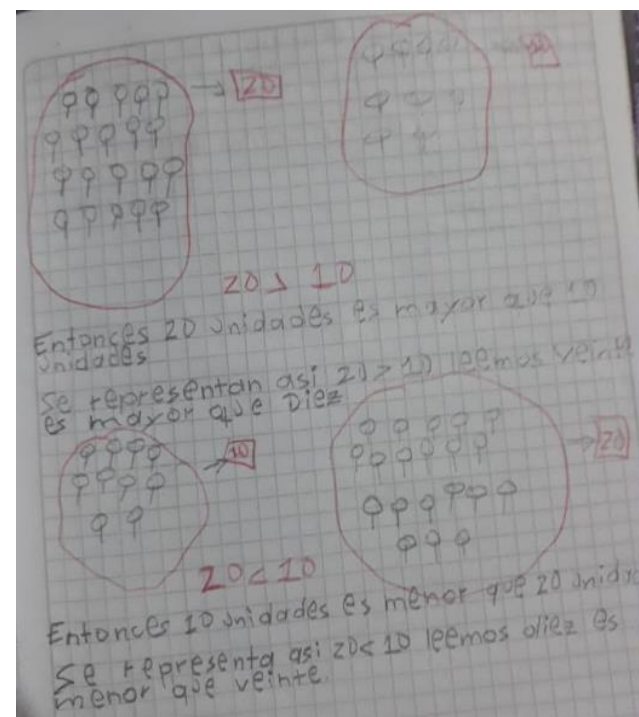 20
10
20 > 10
Entonces 20 unidades es mayor que 10
unidades
Se representan asi 20 > 10 leemos veinte
es mayor que Diez
10
20
20 < 10
Entonces 10 unidades es menor que 20
Se representa asi 20 < 10 leemos diez es
menor que veinte.